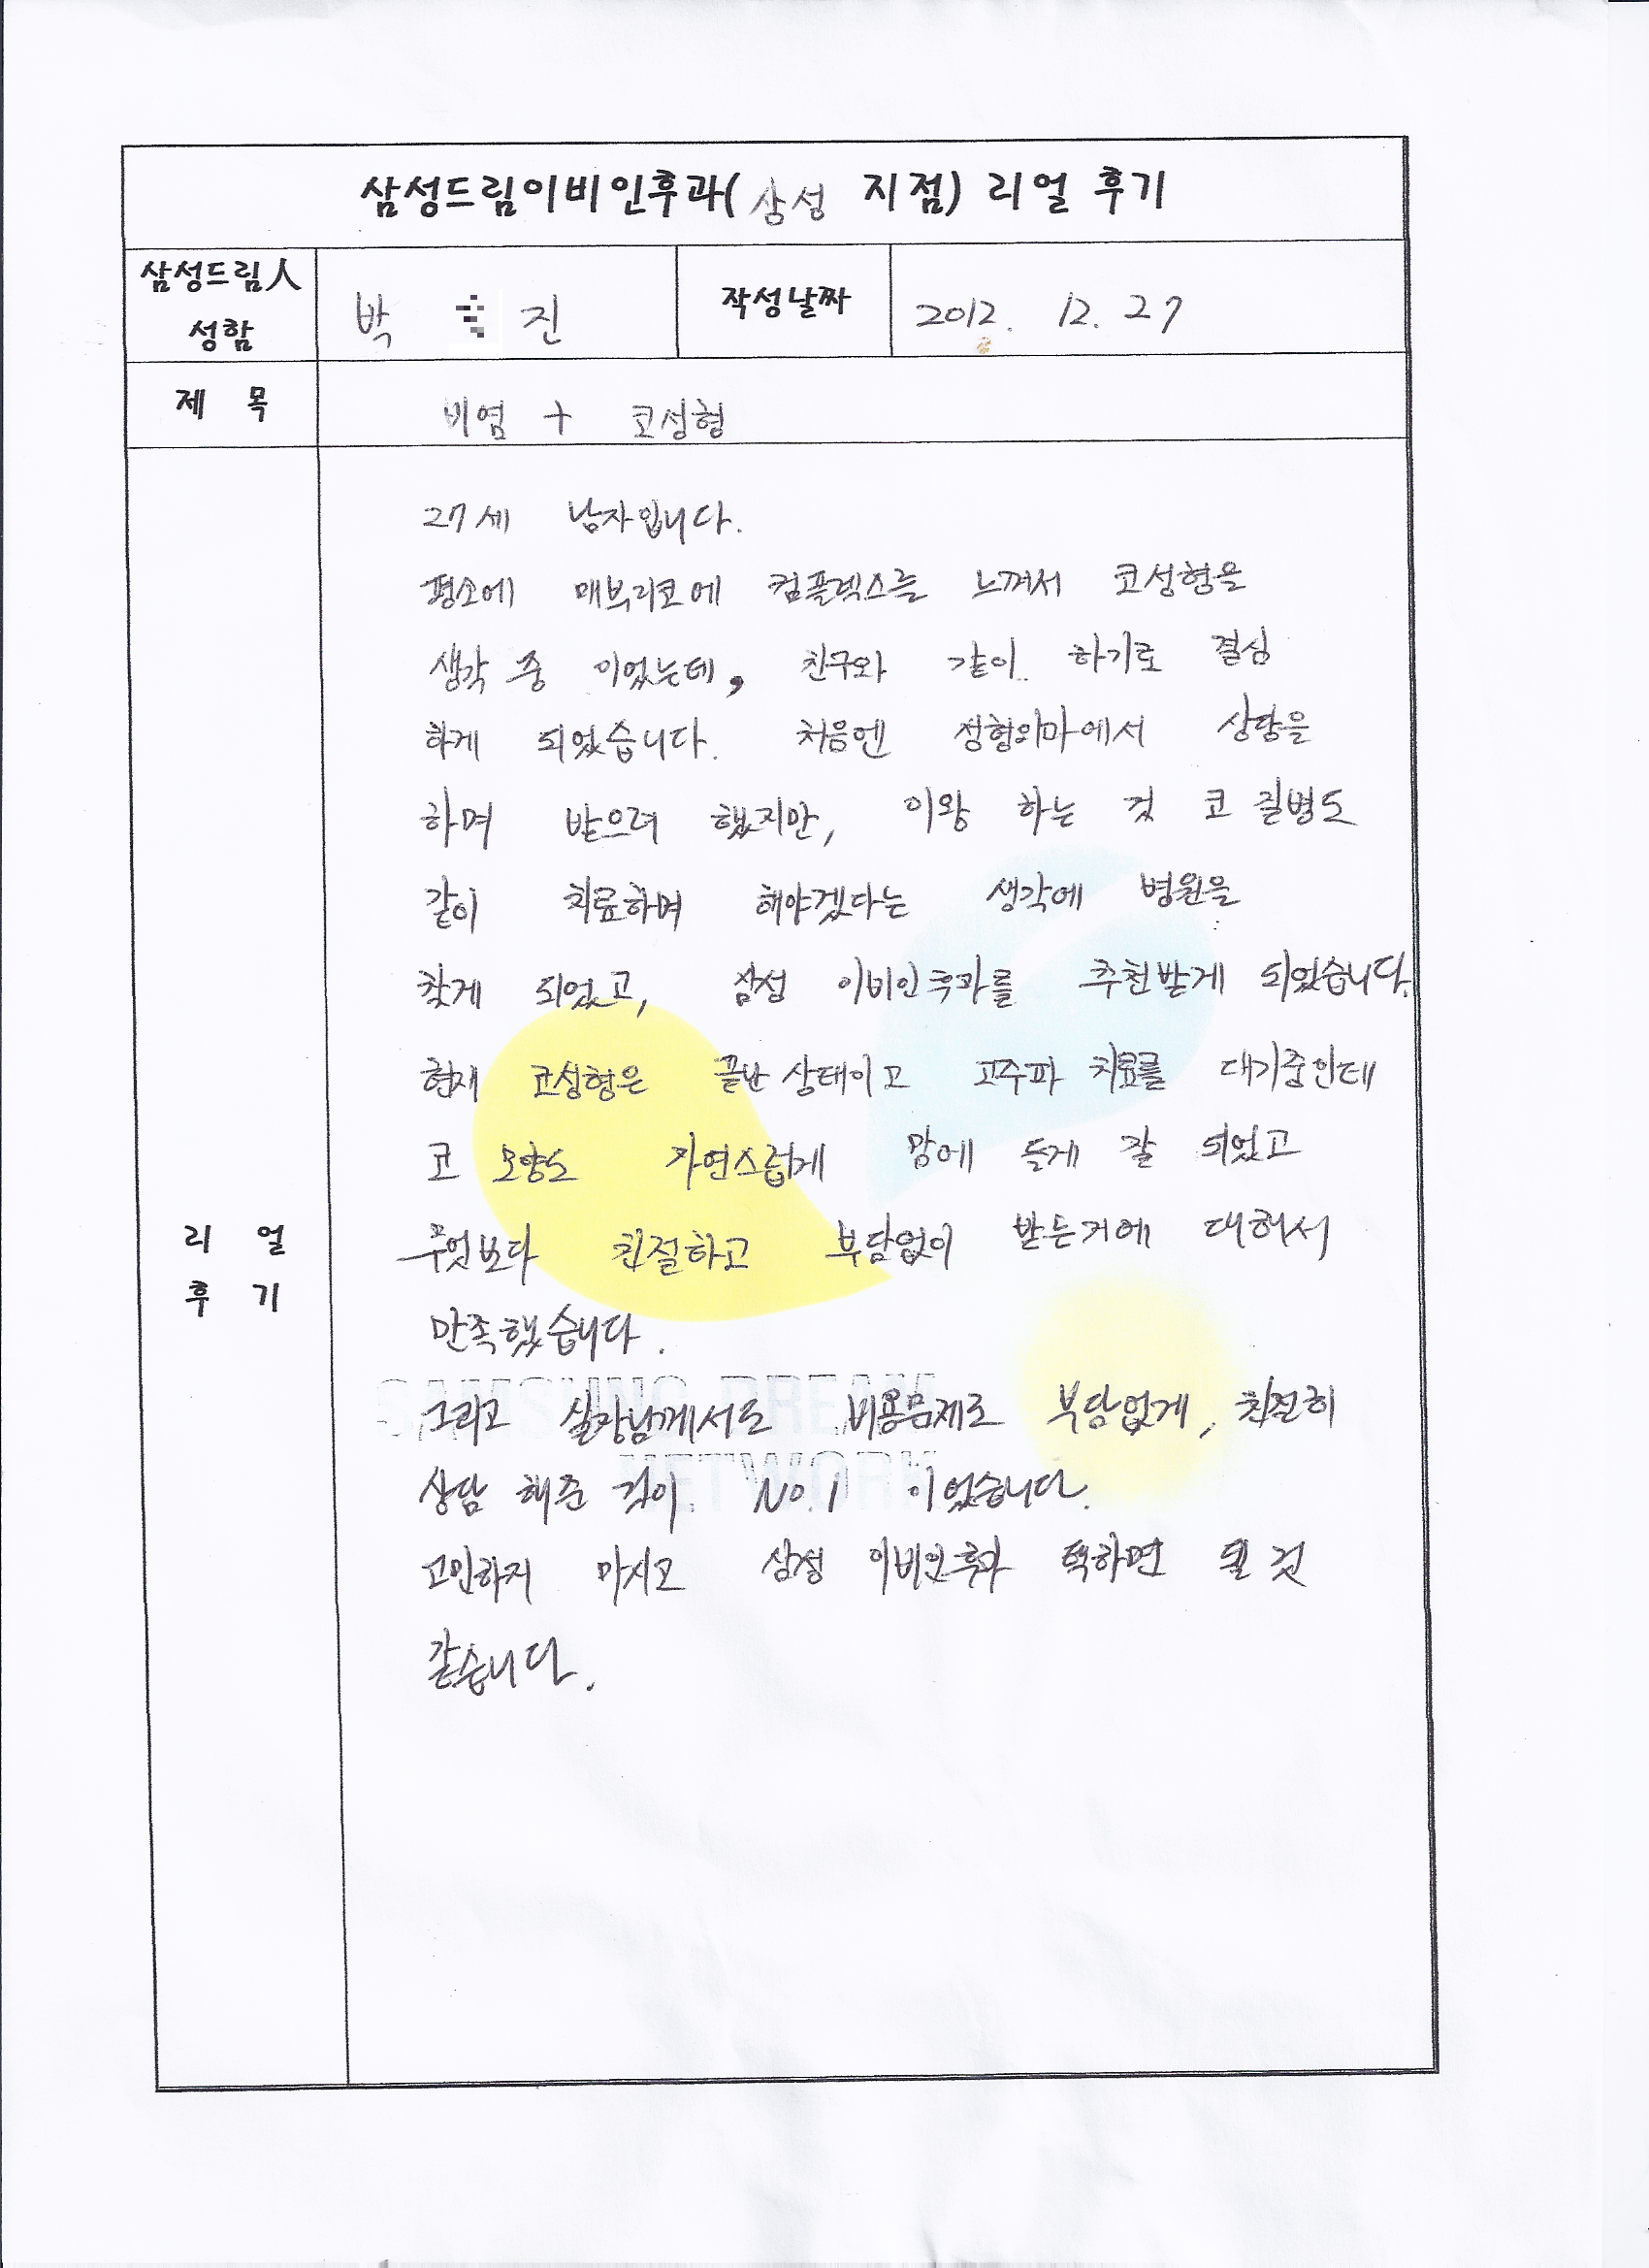 삼성드림이비인후과(삼성 지점) 리얼 후기
삼성드림人 성함
박 진
작성날짜
2012. 12. 27
제 목
비염 + 코성형
리 얼 후 기
27세 남자입니다.
평소에 매부리코에 컴플렉스를 느껴서 코성형을
생각 중 이었는데, 친구와 같이 하기로 결심
하게 되었습니다. 처음엔 성형외과에서 상담을
하며 받으려 했지만, 이왕 하는 것 코 질병도
같이 치료하며 해야겠다는 생각에 병원을
찾게 되었고, 삼성 이비인후과를 추천받게 되었습니다.
현재 코성형은 끝난 상태이고 고주파 치료를 대기중인데
코 모양도 자연스럽게 맘에 들게 잘 되었고
무엇보다 친절하고 부담없이 받은거에 대해서
만족했습니다.
SAMSUNG DREAM
그리고 실장님께서도 비용문제로 부담없게, 친절히
NETWORK
상담 해준 것이 No.1 이었습니다.
고민하지 마시고 삼성 이비인후과 택하면 될 것
같습니다.